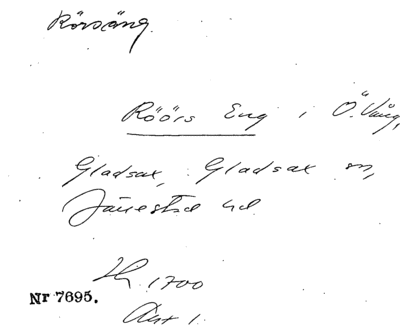 Rörsäng.
Röörs Eng i Ö. Vång,
Gladsax, Gladsax sn,
Järrestad hd
Lh. 1700
Nr 7695.
Akt 1.